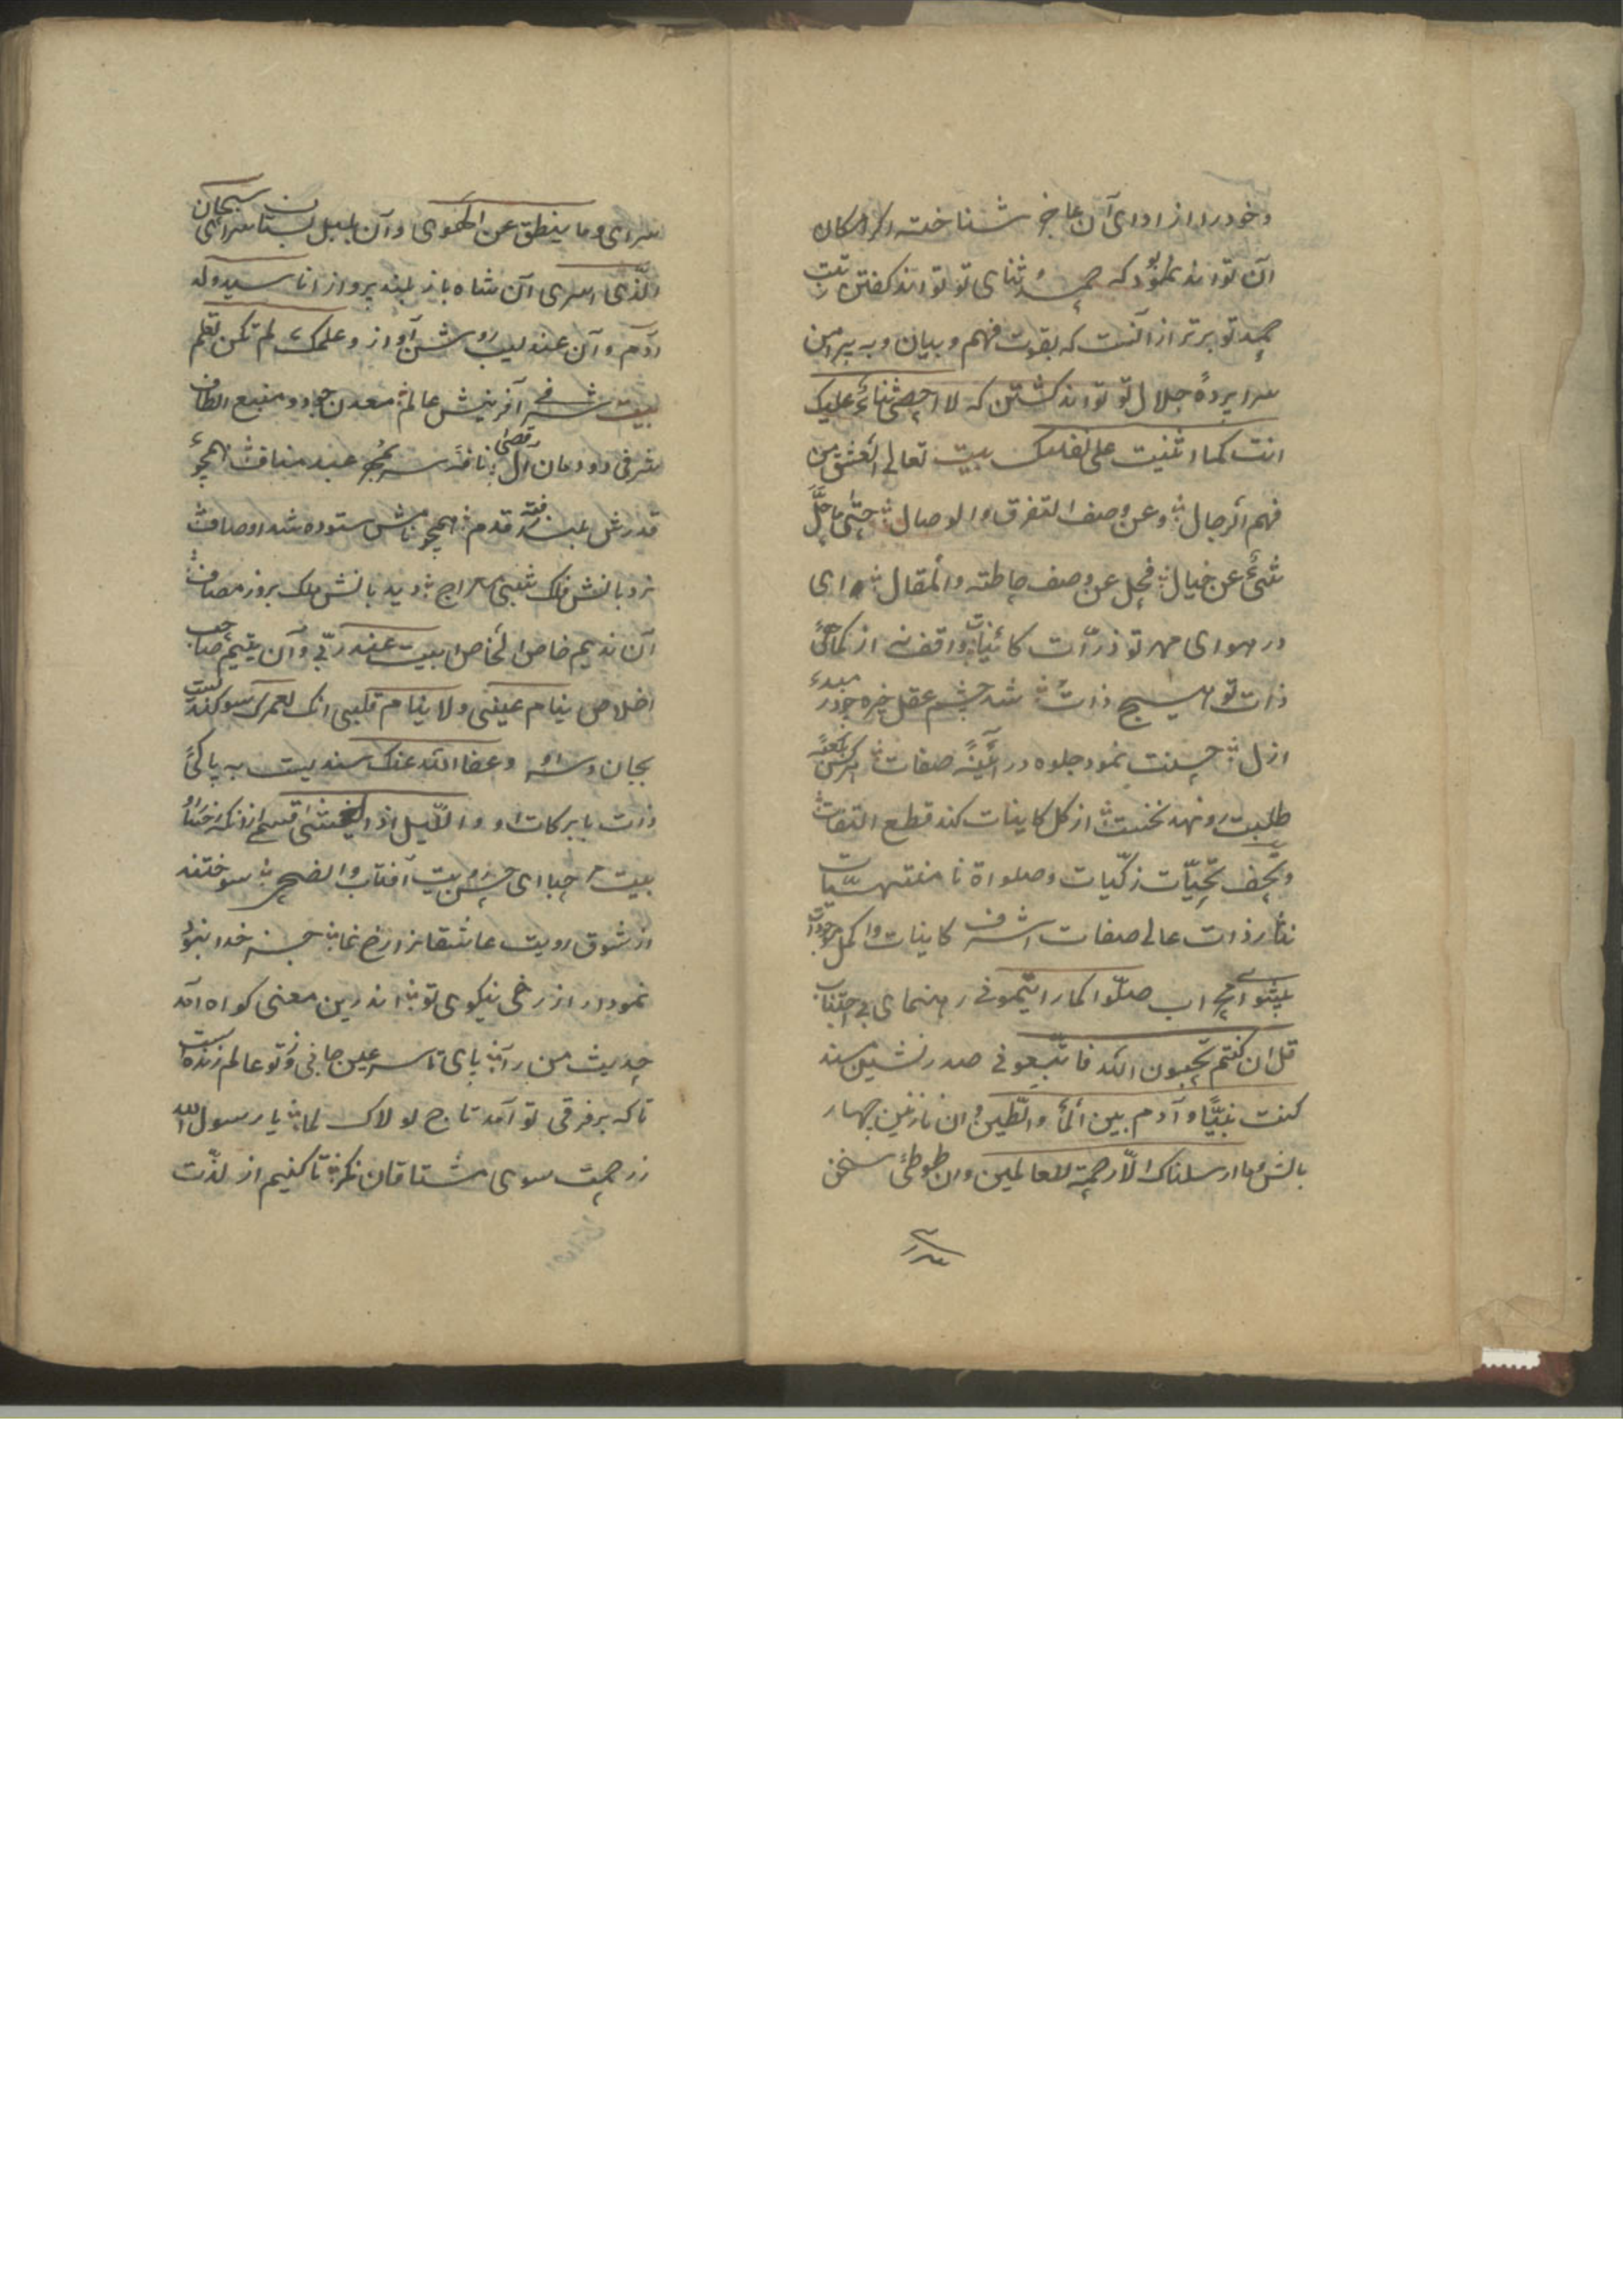 وخود را از ادای آن عاجز شناخته اکر امکان
آن تواند بود که حمد و ثنای تو تواند کفتن رتبت
حمد تو برتر از آنست که بقوت فهم و بیان و به پیرامن
سراپردهٔ جلال تو تواند کشتن که لا احصی ثناءً علیک
انت کما اثنیت علی نفسک بیت تعالی العشق من
فهم الرجال وعن وصف التفرق والوصال متی ما جلّ
شئ عن خیال فجل عن وصف احاطته والمقال ای
در هوای مهر تو ذرّات کائینات واقف نه از کماهی
ذات تو هیچ ذات شد چشم عقل خیره چو در مبدء
ازل حسنت نمود جلوه در آئینهٔ صفات هر کس بکعبهٔ
طلبت رو نهد نخست از کل کاینات کند قطع التفات
وتحف تحیّات زکیّات وصلواة نامنتهیات
نثار ذات عالی صفات اشرف کاینات واکمل موجودات
پیشوای محراب صلّوا کما رایتمونی رهنمای بی اجتناب
قل ان کنتم تحبون الله فاتّبعونی صدر نشین مسند
کنت نبیًّا وآدم بین المأ والطّین وان نازنین چهار
بالش وما ارسلناک الّا رحمة للعالمین وان طوطئ سخن
سرای وما ینطق عن الهوی وآن بلبل بستان سرای سبحان
الّذی اسری آن شاه باز بلند پرواز انا سید ولد
آدم وآن عندلیب روشن آواز وعلمک ما لم تکن تعلم
بیت شرفی آفرینش عالم معدن جود ومنبع الطاف
شرفی دودمان ال قصی نافهٔ سر بمهر عبد مناف همچو
قدرش بلند رفته قدم همچو نامش ستوده شد اوصاف
نردبانش فلک شبی معراج دیدبانش ملک بروز مصاف
آن ندیم خاص الخاص ابیت عند ربّی وآن یتیم صاحب
اخلاص ینام عینی ولا ینام قلبی انک لعمرک سوکندیست
بجان و سر او وعفا الله عنک سندیست به پاکئ
ذات بابرکات او واللّیل اذا یغشی قسم از انکه
بیت مرحبا ای حسن رویت آفتاب والضحی سوختند
از شوق رویت عاشقانرا رخ نما حسن خدا بنمود
نمودار از رخی نیکوی تو اندرین معنی کواه آمد
حدیث من رآ پای تا سر عین جانی وز تو عالم زنده است
تا که بر فرقی تو آمد تاج لولاک لما یا رسول الله
ز رحمت سوی مشتاقان نکر تا کنیم از لذّت
سرای